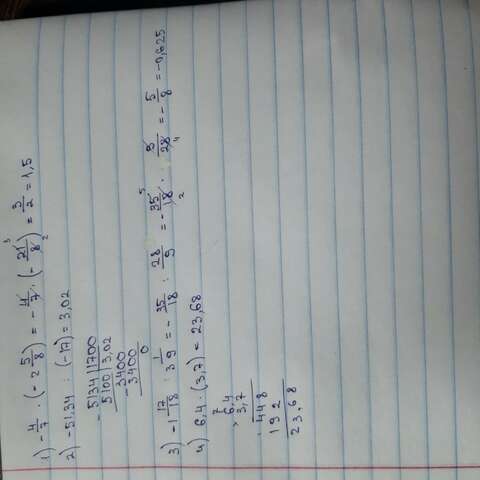 1) -4/7 · (-2 5/8) = -4/7 · (-21/8) = 3/2 = 1,5
3
2
2) -51,34 : (-17) = 3,02
- 5134 | 1700
5100 | 3,02
- 3400
3400
0
3) -1 17/18 : 3 1/9 = - 35/18 : 28/9 = - 35/18 · 9/28 = - 5/8 = -0,625
5
2
4
4) 6,4 · (3,7) = 23,68
6,4
3,7
448
192
23,68